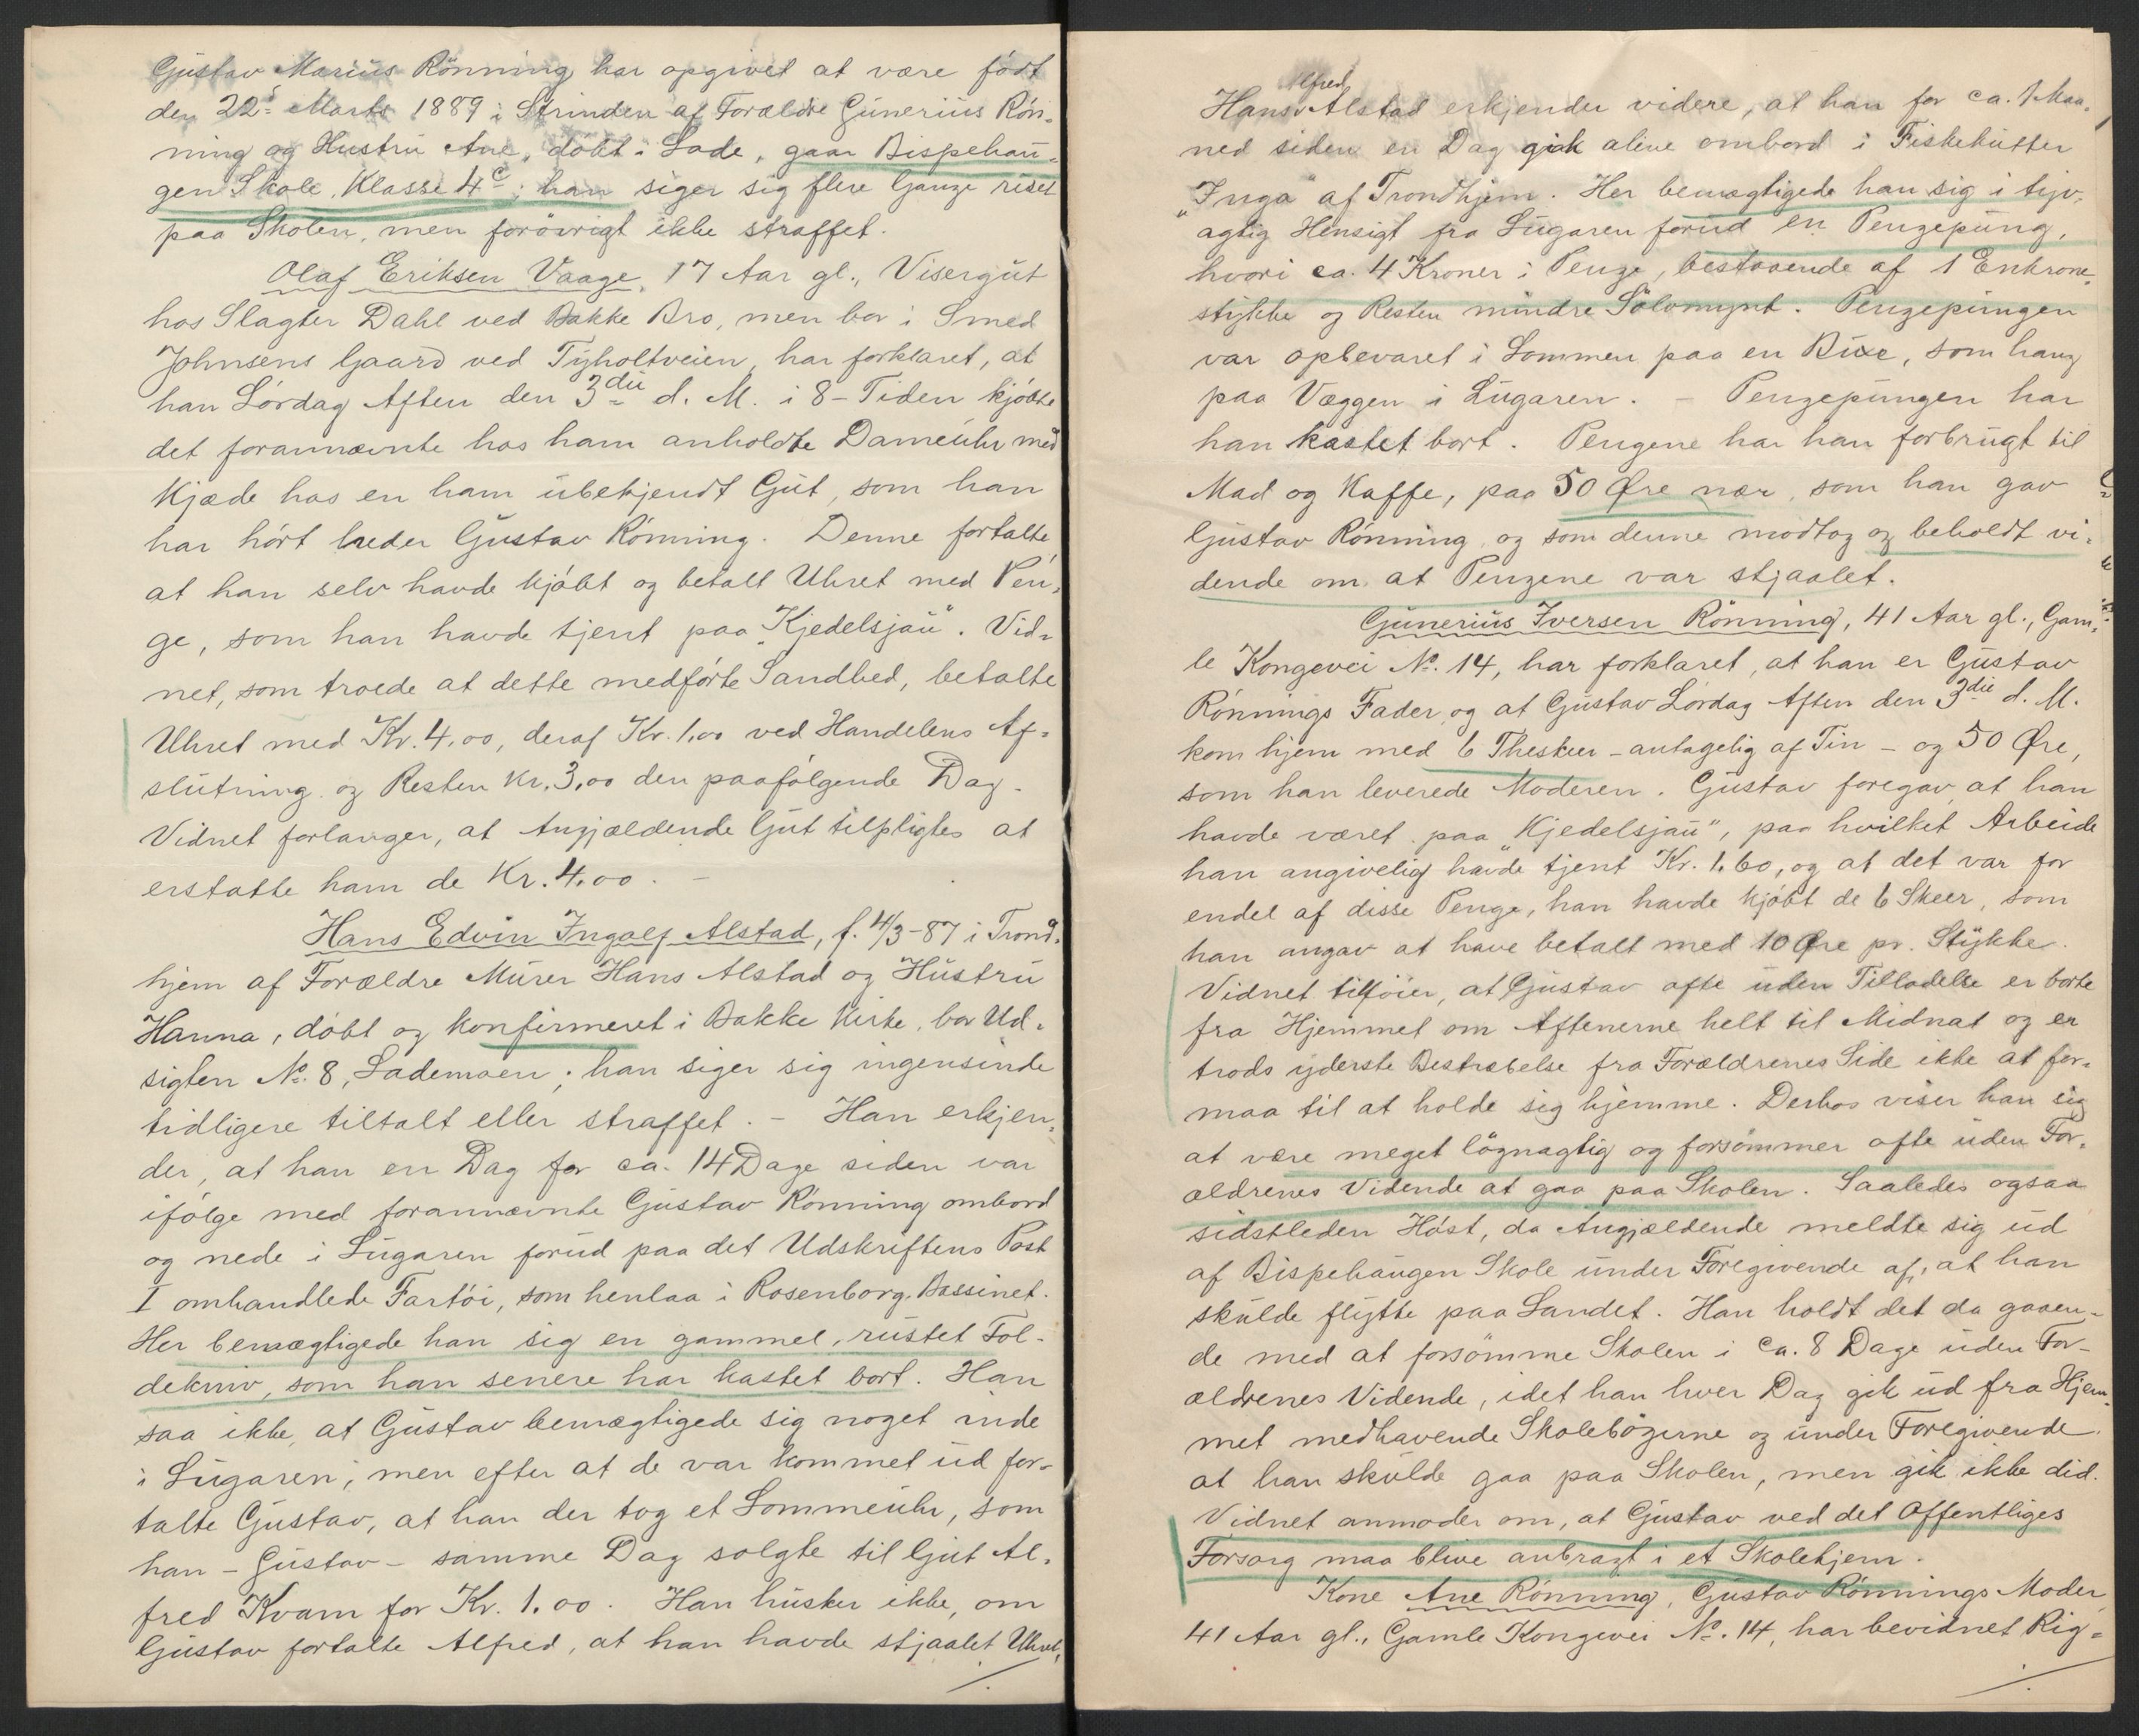 Gustav Marius Rönning har opgivet at være født
den 22de Marts 1889 i Strinden af Forældre Gunerius Rön-
ning og Hustru Ane, döbt i Lade, gaar Bispehau-
gen Skole, Klasse 4c; han siger sig flere Gange riset
paa Skolen, men forövrigt ikke straffet.
Olaf Eriksen Vaage, 17 Aar gl., Visergut
hos Slagter Dahl ved Bakke Bro, men bor i Smed
Johnsens Gaard ved Tyholtveien, har forklaret, at
han Lördag Aften den 3die d. M. i 8-Tiden kjöbte
det forannævnte hos ham anholdte Dameuhr med
Kjæde hos en ham ubekjendt Gut, som han
har hört heder Gustav Rönning. Denne fortalte,
at han selv havde kjöbt og betalt Uhret med Pen-
ge, som han havde tjent paa "Kjedelsjau". Vid-
net, som troede at dette medförte Sandhed, betalte
Uhret med Kr. 4,00, deraf Kr. 1,00 ved Handelens Af-
slutning og Resten Kr. 3,00 den paafölgende Dag.
Vidnet forlanger, at Angjældende Gut tilpligtes at
erstatte ham de Kr. 4,00. -
Hans Edvin Ingolf Alstad, f. 4/3-87 i Trond-
hjem af Forældre Murer Hans Alstad og Hustru
Hanna, döbt og konfirmeret i Bakke Kirke, bor Ud-
sigten No. 8, Lademoen; han siger sig ingensinde
tidligere tiltalt eller straffet. - Han erkjen-
der, at han en Dag for ca. 14 Dage siden var
ifölge med forannævnte Gustav Rönning ombord
og nede i Lugaren forud paa det Udskriftens Post
I omhandlede Fartöi, som henlaa i Rosenborg-Bassinet.
Her bemægtigede han sig en gammel, rustet Fol-
dekniv, som han senere har kastet bort. Han
saa ikke, at Gustav bemægtigede sig noget inde
i Lugaren; men efter at de var kommet ud for-
talte Gustav, at han der tog et Lommeuhr, som
han - Gustav - samme Dag solgte til Gut Al-
fred Kvam for Kr. 1.00. Han husker ikke, om
Gustav fortalte Alfred, at han havde stjaalet Uhret.
Alfred
Hans Alstad erkjender videre, at han for ca. 1 Maa-
ned siden en Dag gik alene ombord i Fiskekutter
"Inga" af Trondhjem. Her bemægtigede han sig i tyv-
agtig Hensigt fra Lugaren forud en Pengepung,
hvori ca. 4 Kroner i Penge, bestaaende af 1 Enkrone-
stykke og Resten mindre Sölvmynt. Pengepungen
var opbevaret i Lommen paa en Buxe, som hang
paa Væggen i Lugaren. - Pengepungen har
han kastet bort. Pengene har han forbrugt til
Mad og Kaffe, paa 50 Øre nær, som han gav
Gustav Rönning og som denne modtog og beholdt vi-
dende om at Pengene var stjaalet.
Gunerius Iversen Rönning, 41 Aar gl., Gam-
le Kongevei No. 14, har forklaret, at han er Gustav
Rönnings Fader, og at Gustav Lördag Aften den 3die d. M.
kom hjem med 6 Theskeer - antagelig af Tin - og 50 Øre,
som han leverede Moderen. Gustav foregav at han
havde været paa "Kjedelsjau", paa hvilket Arbeide
han angivelig havde tjent Kr. 1.60, og at det var for
endel af disse Penge, han havde kjöbt de 6 Skeer, som
han angav at have betalt med 10 Øre pr. Stykke.
Vidnet tilföier, at Gustav ofte uden Tilladelse er borte
fra Hjemmet om Aftenerne helt til Midnat og er
trods yderste Bestræbelse fra Forældrenes Side ikke at for-
maa til at holde sig hjemme. Derhos viser han sig
at være meget lögnagtig og forsömmer ofte uden For-
ældrenes Vidende at gaa paa Skolen. Saaledes ogsaa
sidstleden Höst, da Angjældende meldte sig ud
af Bispehaugen Skole under Foregivende af, at han
skulde flytte paa Landet. Han holdt det da gaaen-
de med at forsömme Skolen i ca. 8 Dage uden For-
ældrenes Vidende, idet han hver Dag gik ud fra Hjem-
met medhavende Skolebögerne og under Foregivende
at han skulde gaa paa Skolen, men gik ikke did.
Vidnet anmoder om, at Gustav ved det Offentliges
Forsorg maa blive anbragt i et Skolehjem.
Kone Ane Rönning, Gustav Rönnings Moder,
41 Aar gl., Gamle Kongevei No. 14, har bevidnet Rig-